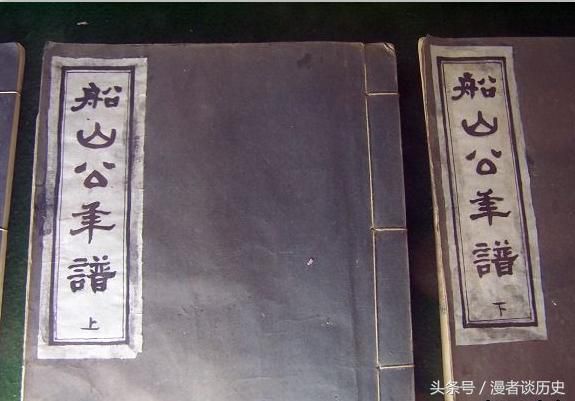 船山公年譜
上
船山公年譜
下
头条号／漫者谈历史